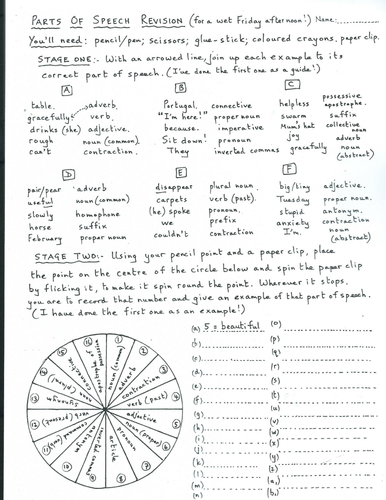 PARTS OF SPEECH REVISION (for a wet Friday afternoon!) Name:
You'll need: pencil/pen; scissors; glue-stick; coloured crayons, paper clip.
STAGE ONE:- With an arrowed line, join up each example to its
correct part of speech. (I've done the first one as a guide!)
A
table. adverb.
gracefully verb.
drinks (she) adjective.
rough noun (common)
can't contraction.
B
Portugal, connective
"I'm here!" proper noun
because. imperative
Sit down! pronoun
They inverted commas
C
helpless possessive apostrophe.
swarm suffix
Mum's hat collective noun
joy adverb
gracefully noun (abstract)
D
pair/pear adverb
useful noun (common)
slowly homophone
horse suffix
February proper noun
E
disappear plural noun.
carpets verb (past).
(he) spoke pronoun.
we prefix
couldn't contraction
F
big/tiny adjective.
Tuesday proper noun.
stupid antonym.
anxiety contraction
I'm. noun (abstract)
STAGE TWO:- Using your pencil point and a paper clip, place
the point on the centre of the circle below and spin the paper clip
by flicking it, to make it spin round the point. Wherever it stops,
you are to record that number and give an example of that part of speech.
(I have done the first one as an example!)
noun (common)
adverb
contraction
verb (past)
adjective
noun (proper)
pronoun
article
inverted commas
antonym
compound word
verb (present)
synonym
noun (plural)
connective
(a) 5 = beautiful
(b)
(c)
(d)
(e)
(f)
(g)
(h)
(i)
(j)
(k)
(l)
(m)
(n)
(o)
(p)
(q)
(r)
(s)
(t)
(u)
(v)
(w)
(x)
(y)
(z)
(a,)
(b,)